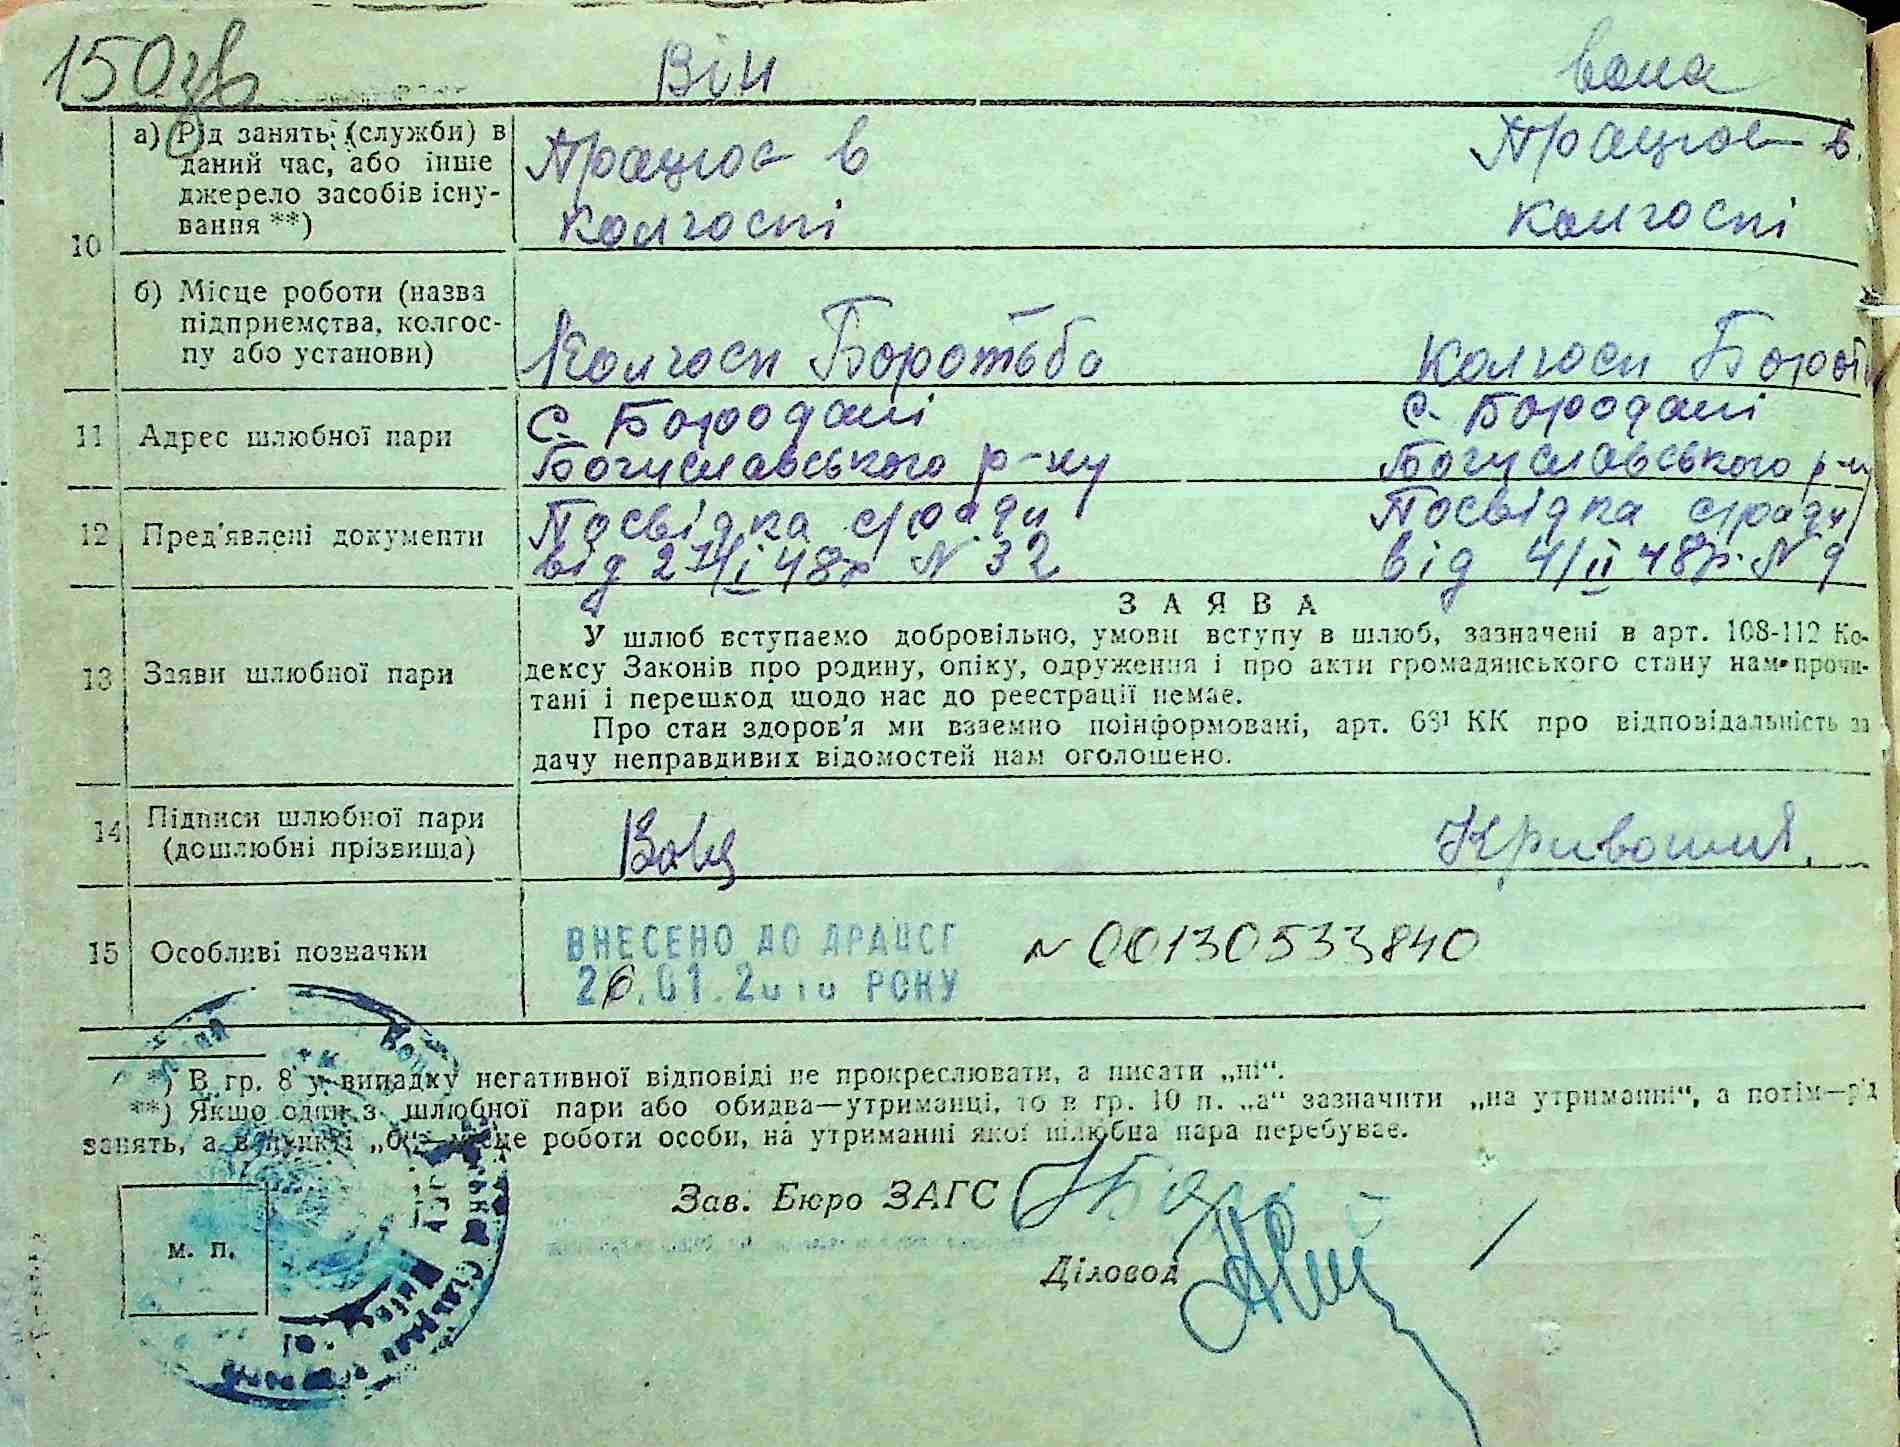 150зв Він Вона
10
а) Рід занять (службі) в даний час, або інше джерело засобів існування **)
Працює в колгоспі
Працює в колгоспі
б) Місце роботи (назва підприємства, колгоспу або установи)
Колгосп Боротьба
Колгосп Бороть
11 Адрес шлюбної пари
с. Бородані
Богуславського р-ну
с. Бородані
Богуславського р-ну
12 Пред'явлені документи
Посвідка с/ради
від 27/I 48р N 32
Посвідка с/ради
від 4/II 48р. N 9
13 Заяви шлюбної пари
ЗАЯВА
У шлюб вступаємо добровільно, умови вступу в шлюб, зазначені в арт. 108-112 Ко-
дексу Законів про родину, опіку, одруження і про акти громадянського стану нам прочи-
тані і перешкод щодо нас до реєстрації немає.
Про стан здоров'я ми взаємно поінформовані, арт. 68¹ КК про відповідальність за
дачу неправдивих відомостей нам оголошено.
14 Підписи шлюбної пари
(дошлюбні прізвища)
Кривошия
15 Особливі позначки
ВНЕСЕНО ДО ДРАЦСГ N 00130533840
26.01.2010 РОКУ
*) В гр. 8 у випадку негативної відповіді не прокреслювати, а писати „ні“.
**) Якщо один з шлюбної пари або обидва—утриманці, то в гр. 10 п. „а“ зазначити „на утриманні“, а потім—рід
занять, а в пункті „б“—місце роботи особи, на утриманні якої шлюбна пара перебуває.
Зав. Бюро ЗАГС
Діловод
М. П.